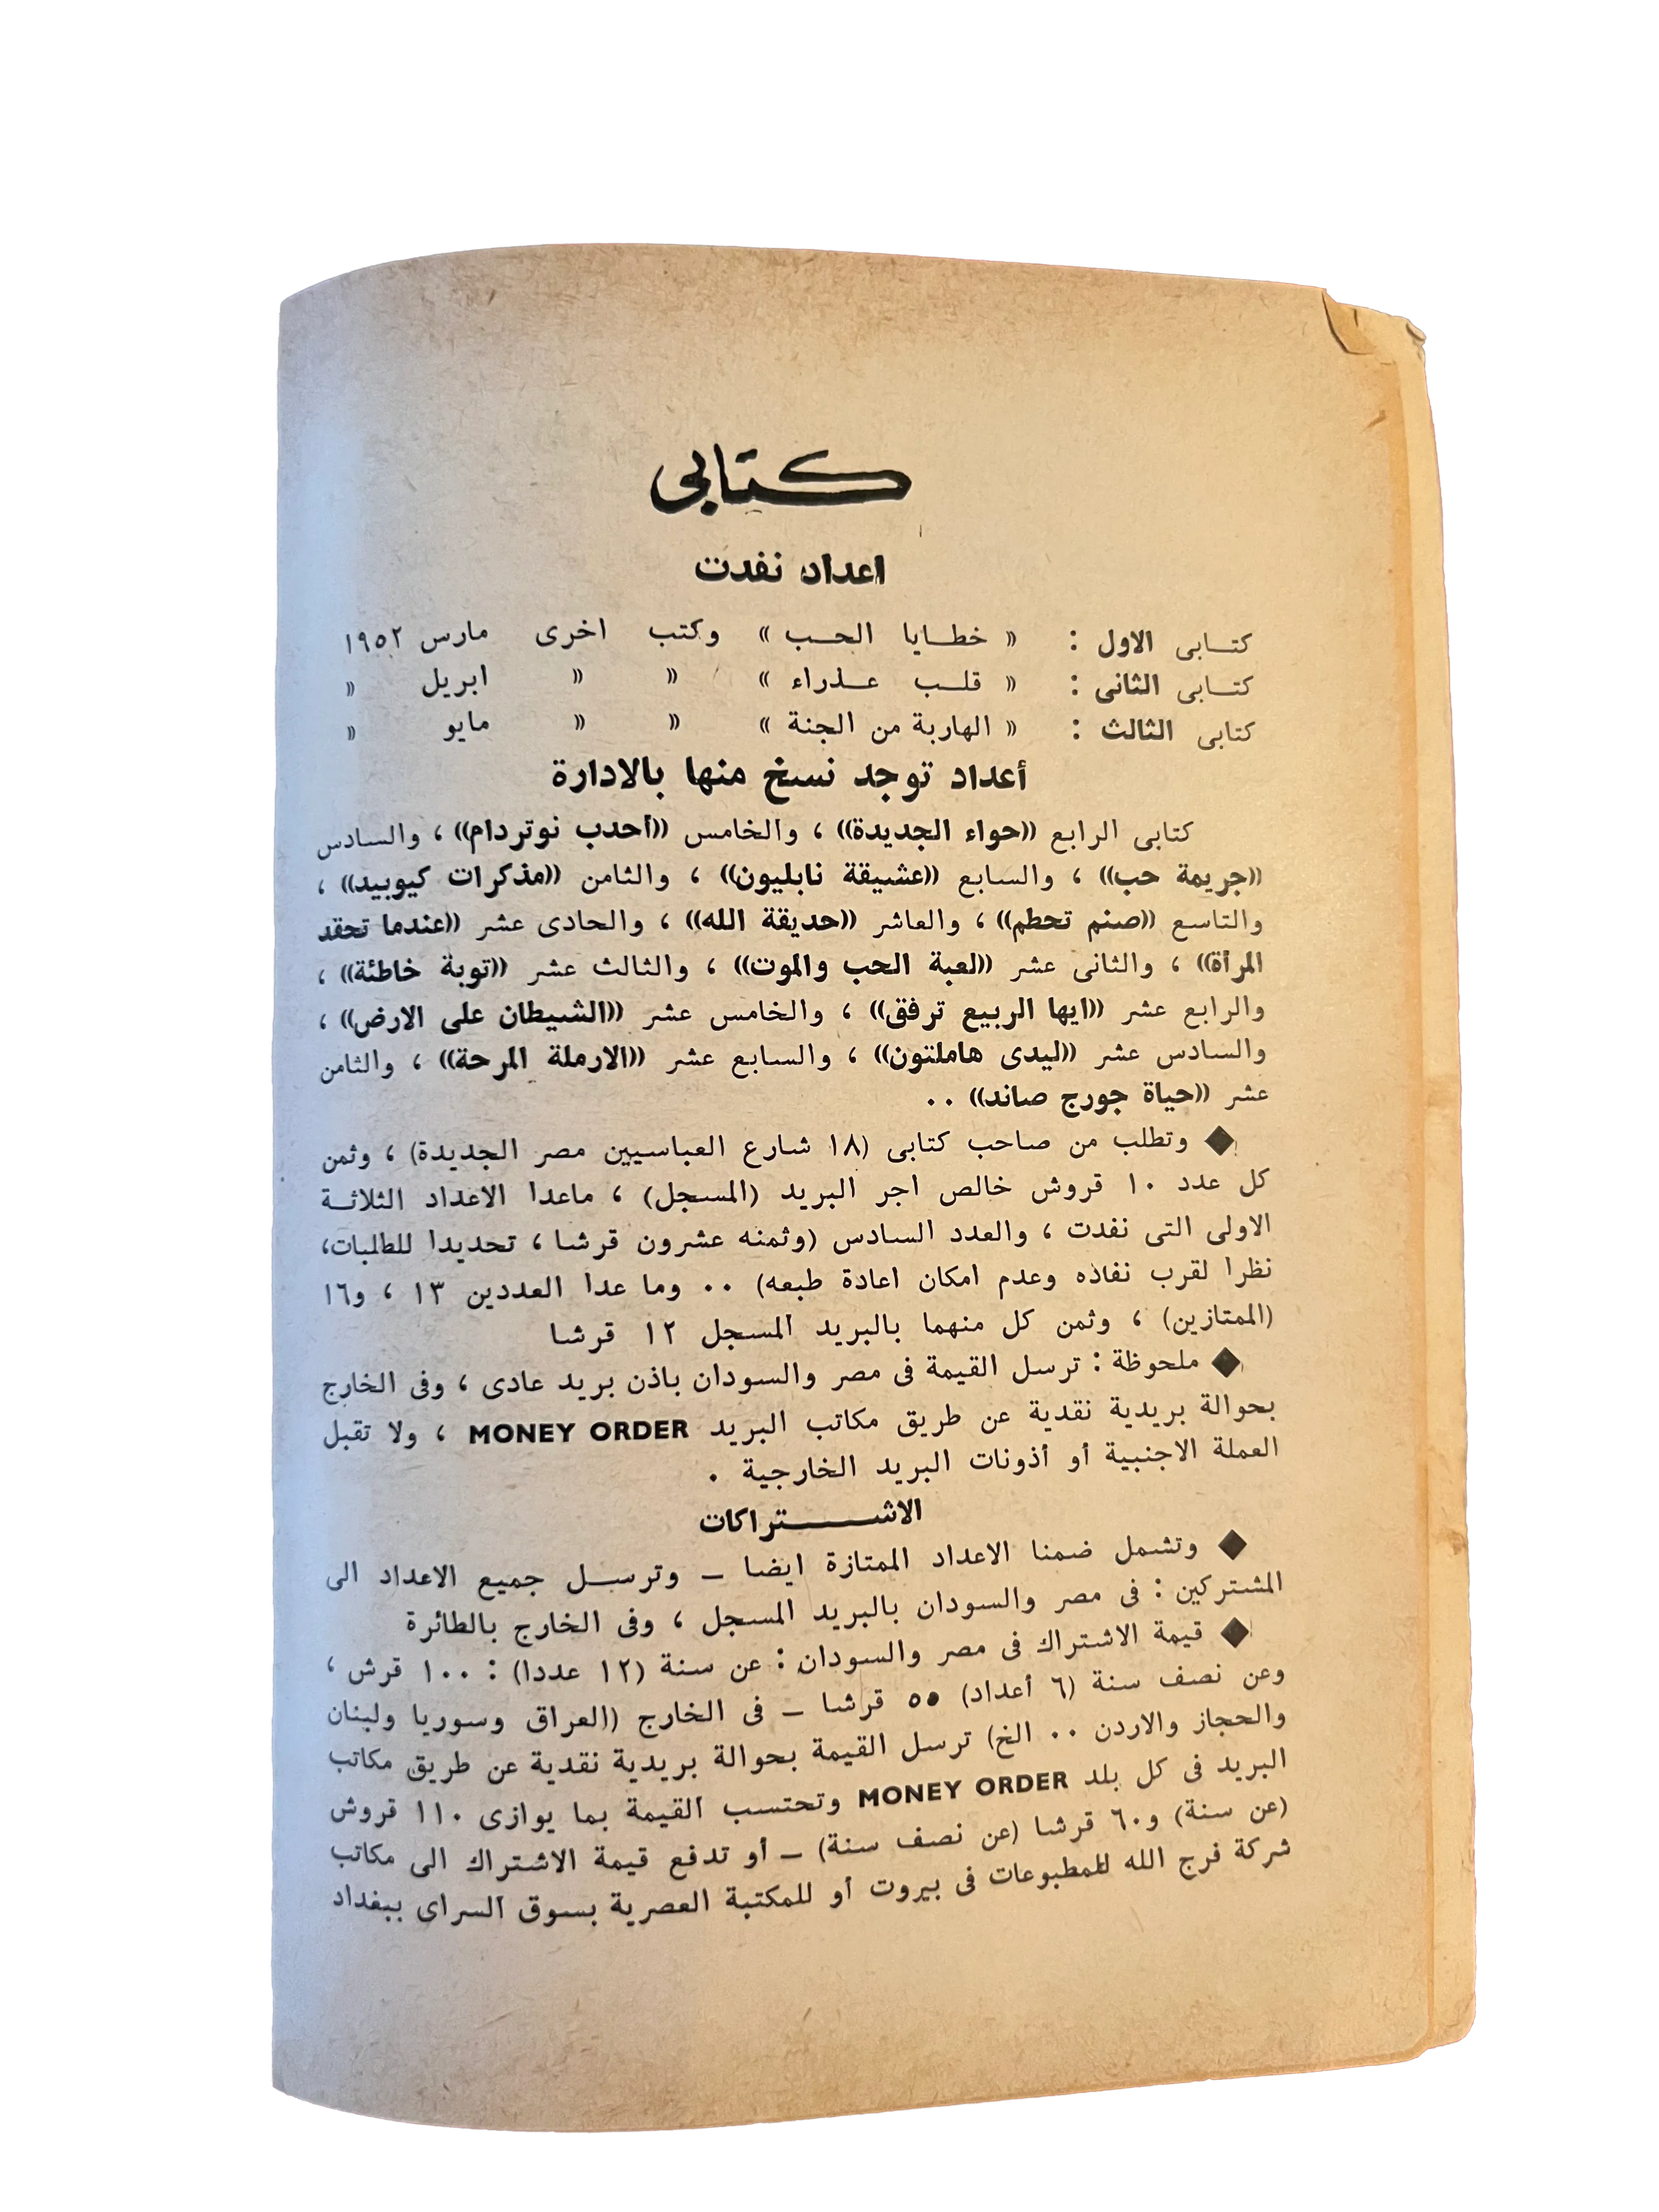 كتابى
اعداد نفدت
كتــابى الاول : « خطــايا الحــب » وكتب اخرى مارس ١٩٥٢
كتــابى الثانى : « قلــب عــذراء » » » ابريل »
كتابى الثالث : « الهاربة من الجنة » » » مايو »
أعداد توجد نسخ منها بالادارة
كتابى الرابع «حواء الجديدة» ، والخامس «أحدب نوتردام» ، والسادس
«جريمة حب» ، والسابع «عشيقة نابليون» ، والثامن «مذكرات كيوبيد» ،
والتاسع «صنم تحطم» ، والعاشر «حديقة الله» ، والحادى عشر «عندما تحقد
المرأة» ، والثانى عشر «لعبة الحب والموت» ، والثالث عشر «توبة خاطئة» ،
والرابع عشر «ايها الربيع ترفق» ، والخامس عشر «الشيطان على الارض» ،
والسادس عشر «ليدى هاملتون» ، والسابع عشر «الارملة المرحة» ، والثامن
عشر «حياة جورج صاند» ..
◆ وتطلب من صاحب كتابى (١٨ شارع العباسيين مصر الجديدة) ، وثمن
كل عدد ١٠ قروش خالص اجر البريد (المسجل) ، ماعدا الاعداد الثلاثــة
الاولى التى نفدت ، والعدد السادس (وثمنه عشرون قرشا ، تحديدا للطلبات،
نظرا لقرب نفاذه وعدم امكان اعادة طبعه) .. وما عدا العددين ١٣ ، و١٦
(الممتازين) ، وثمن كل منهما بالبريد المسجل ١٢ قرشا
◆ ملحوظة : ترسل القيمة فى مصر والسودان باذن بريد عادى ، وفى الخارج
بحوالة بريدية نقدية عن طريق مكاتب البريد MONEY ORDER ، ولا تقبل
العملة الاجنبية أو أذونات البريد الخارجية .
الاشــــــتراكات
◆ وتشمل ضمنا الاعداد الممتازة ايضا – وترســل جميع الاعداد الى
المشتركين : فى مصر والسودان بالبريد المسجل ، وفى الخارج بالطائرة
◆ قيمة الاشتراك فى مصر والسودان : عن سنة (١٢ عددا) : ١٠٠ قرش ،
وعن نصف سنة (٦ أعداد) ٥٥ قرشا – فى الخارج (العراق وسوريا ولبنان
والحجاز والاردن .. الخ) ترسل القيمة بحوالة بريدية نقدية عن طريق مكاتب
البريد فى كل بلد MONEY ORDER وتحتسب القيمة بما يوازى ١١٠ قروش
(عن سنة) و٦٠ قرشا (عن نصف سنة) – أو تدفع قيمة الاشتراك الى مكاتب
شركة فرج الله للمطبوعات فى بيروت أو للمكتبة العصرية بسوق السراى ببغداد